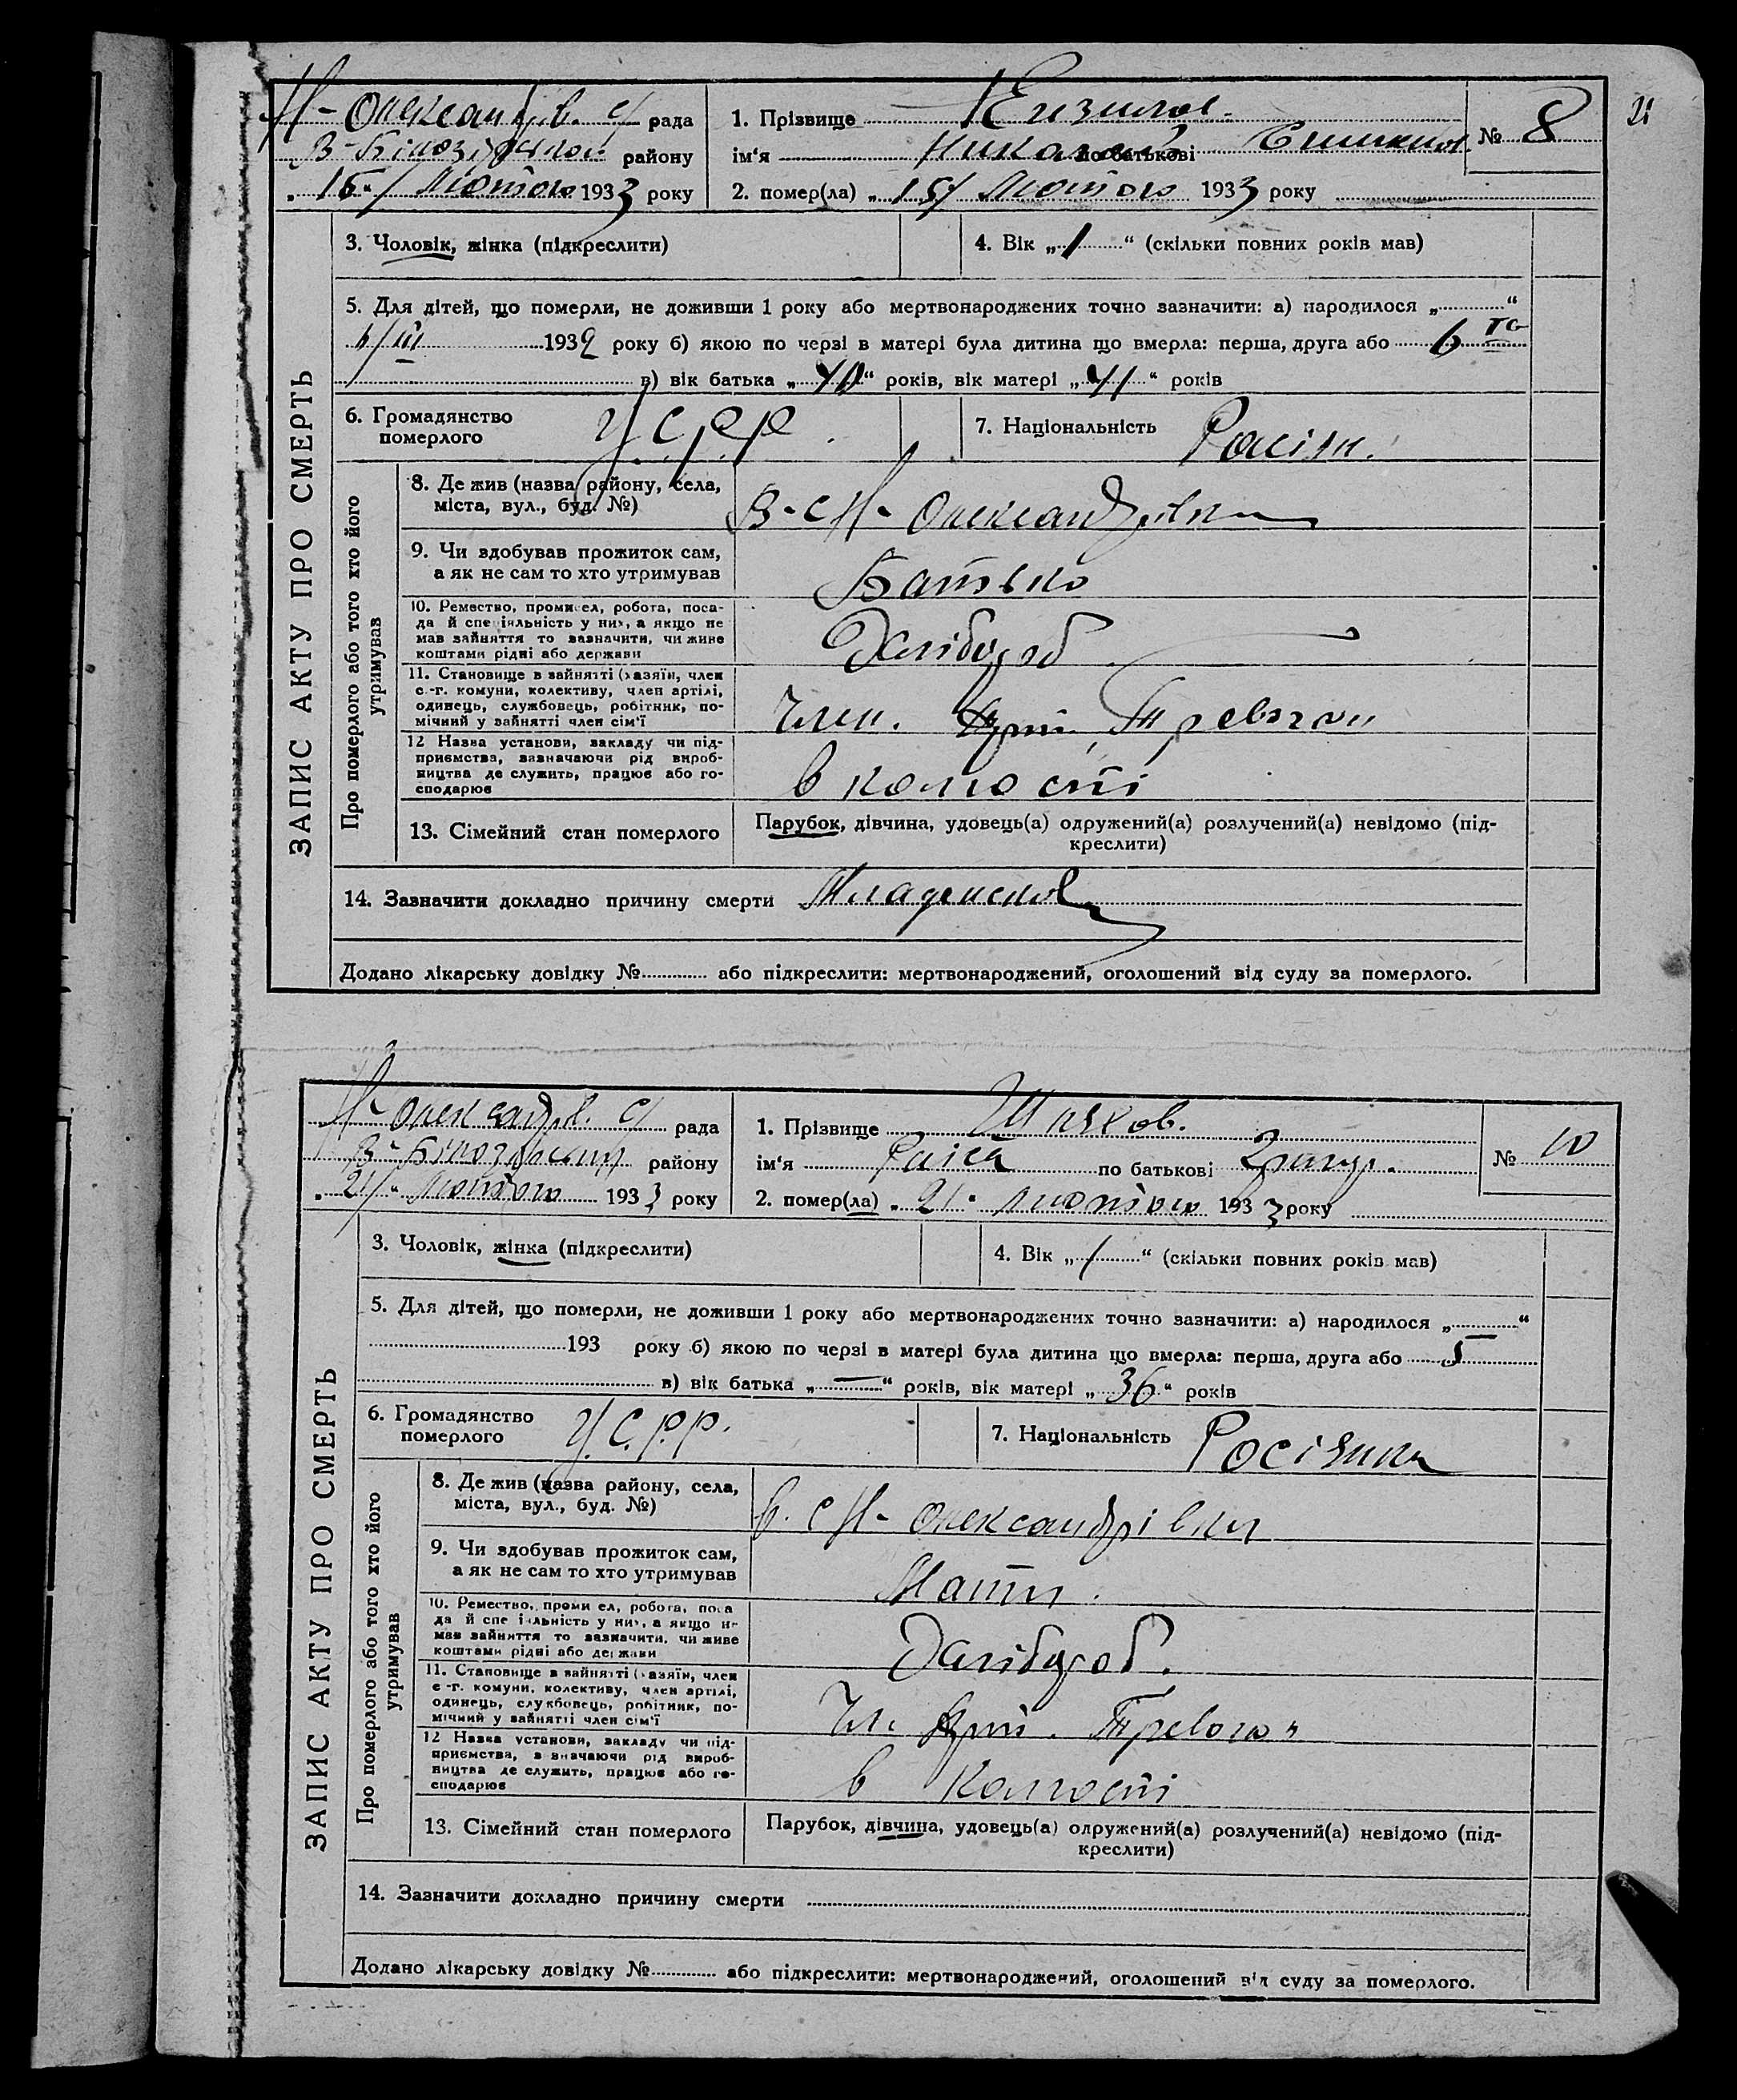 Н-Олександрів. с/ рада
В-Білозірської району
„15“/ Лютого 1933 року
1. Прізвище
ім‘я Николай по батькові
2. помер(ла) „15/ Лютого 1933 року
№ 8
21
ЗАПИС АКТУ ПРО СМЕРТЬ
3. Чоловік, жінка (підкреслити)
4. Вік „1“ (скільки повних років мав)
5. Для дітей, що померли, не доживши 1 року або мертвонароджених точно зазначити: а) народилося „ “
6/III 1932 року б) якою по черзі в матері була дитина що вмерла: перша, друга або 6 та
в) вік батька „40“ років, вік матері „41“ років
6. Громадянство
померлого
У.С.Р.Р.
7. Національність Росіян.
Про померлого або того хто його
утримував
8. Де жив (назва району, села,
міста, вул., буд. №)
В-с Н-Олександрівки
9. Чи здобував прожиток сам,
а як не сам то хто утримував
Батько
10. Ремество, промисел, робота, поса-
да й спеціяльність у них, а якщо не
мав зайняття то зазначити, чи живе
коштами рідні або держави
Хлібороб
11. Становище в зайнятті (хазяїн, член
с.-г. комуни, колективу, член артілі,
одинець, службовець, робітник, по-
мічний у зайнятті член сім‘ї
Член.
12 Назва установи, закладу чи під-
приємства, зазначаючи рід вироб-
ництва де служить, працює або го-
сподарює
в колгоспі
13. Сімейний стан померлого
Парубок, дівчина, удовець(а) одружений(а) розлучений(а) невідомо (під-
креслити)
14. Зазначити докладно причину смерти Младенская
Додано лікарську довідку № або підкреслити: мертвонароджений, оголошений від суду за померлого.
Н-Олександрів. с/ рада
В-Білозірський району
„21/“ Лютого 1933 року
1. Прізвище Шляхов.
ім‘я Раїса по батькові Григор.
2. помер(ла) „21“ Лютого 1933 року
№ 10
ЗАПИС АКТУ ПРО СМЕРТЬ
3. Чоловік, жінка (підкреслити)
4. Вік „1“ (скільки повних років мав)
5. Для дітей, що померли, не доживши 1 року або мертвонароджених точно зазначити: а) народилося „ “
193 року б) якою по черзі в матері була дитина що вмерла: перша, друга або 5
в) вік батька „—“ років, вік матері „36“ років
6. Громадянство
померлого
У.С.Р.Р.
7. Національність Росіянка
Про померлого або того хто його
утримував
8. Де жив (назва району, села,
міста, вул., буд. №)
В. с Н-Олександрівки
9. Чи здобував прожиток сам,
а як не сам то хто утримував
Мати.
10. Ремество, промисел, робота, поса
да й спеціяльність у них, а якщо не
мав зайняття то зазначити, чи живе
коштами рідні або держави
Хлібороб.
11. Становище в зайнятті (хазяїн, член
с-г. комуни, колективу, член артілі,
одинець, службовець, робітник, по-
мічний у зайнятті член сім‘ї
Чл.
12 Назва установи, закладу чи під-
приємства, зазначаючи рід вироб-
ництва де служить, працює або го-
сподарює
в Колгоспі
13. Сімейний стан померлого
Парубок, дівчина, удовець(а) одружений(а) розлучений(а) невідомо (під-
креслити)
14. Зазначити докладно причину смерти
Додано лікарську довідку № або підкреслити: мертвонароджений, оголошений від суду за померлого.